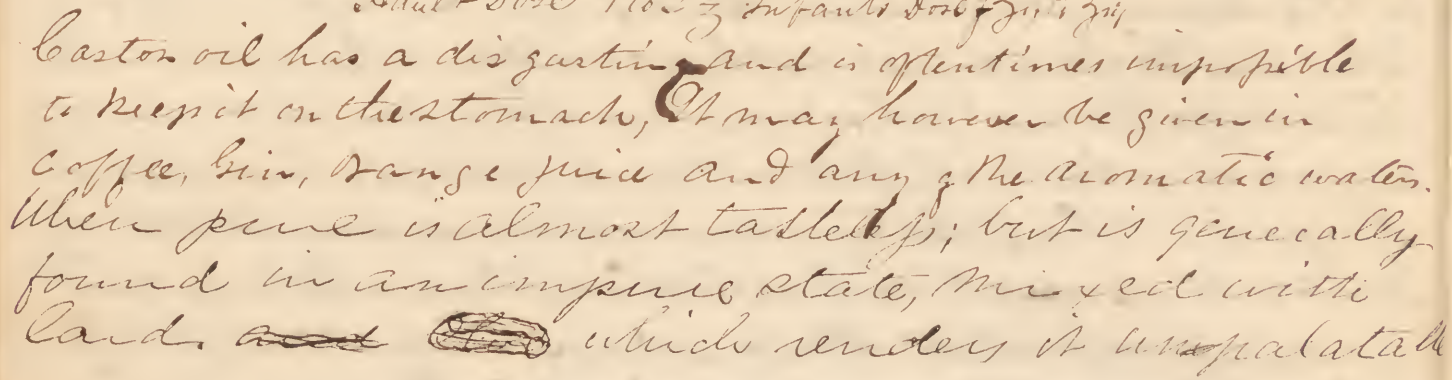 Adult Dose Infants Dose
Castor oil has a disgusting and is oftentimes impossible
to keep it on the stomach, It may however be given in
coffee, Gin, orange juice and any of the aromatic waters.
When pure is almost tasteless; but is generally
found in an impure state, mixed with
lard. and which renders it unpalatable